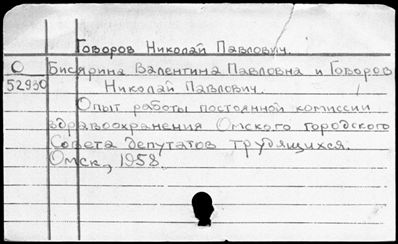 Говоров Николай Павлович.
О Бисярина Валентина Павловна и Говоров
52950 Николай Павлович.
Опыт работы постоянной комиссии
здравоохранения Омского городского
Совета депутатов трудящихся.
Омск, 1958.